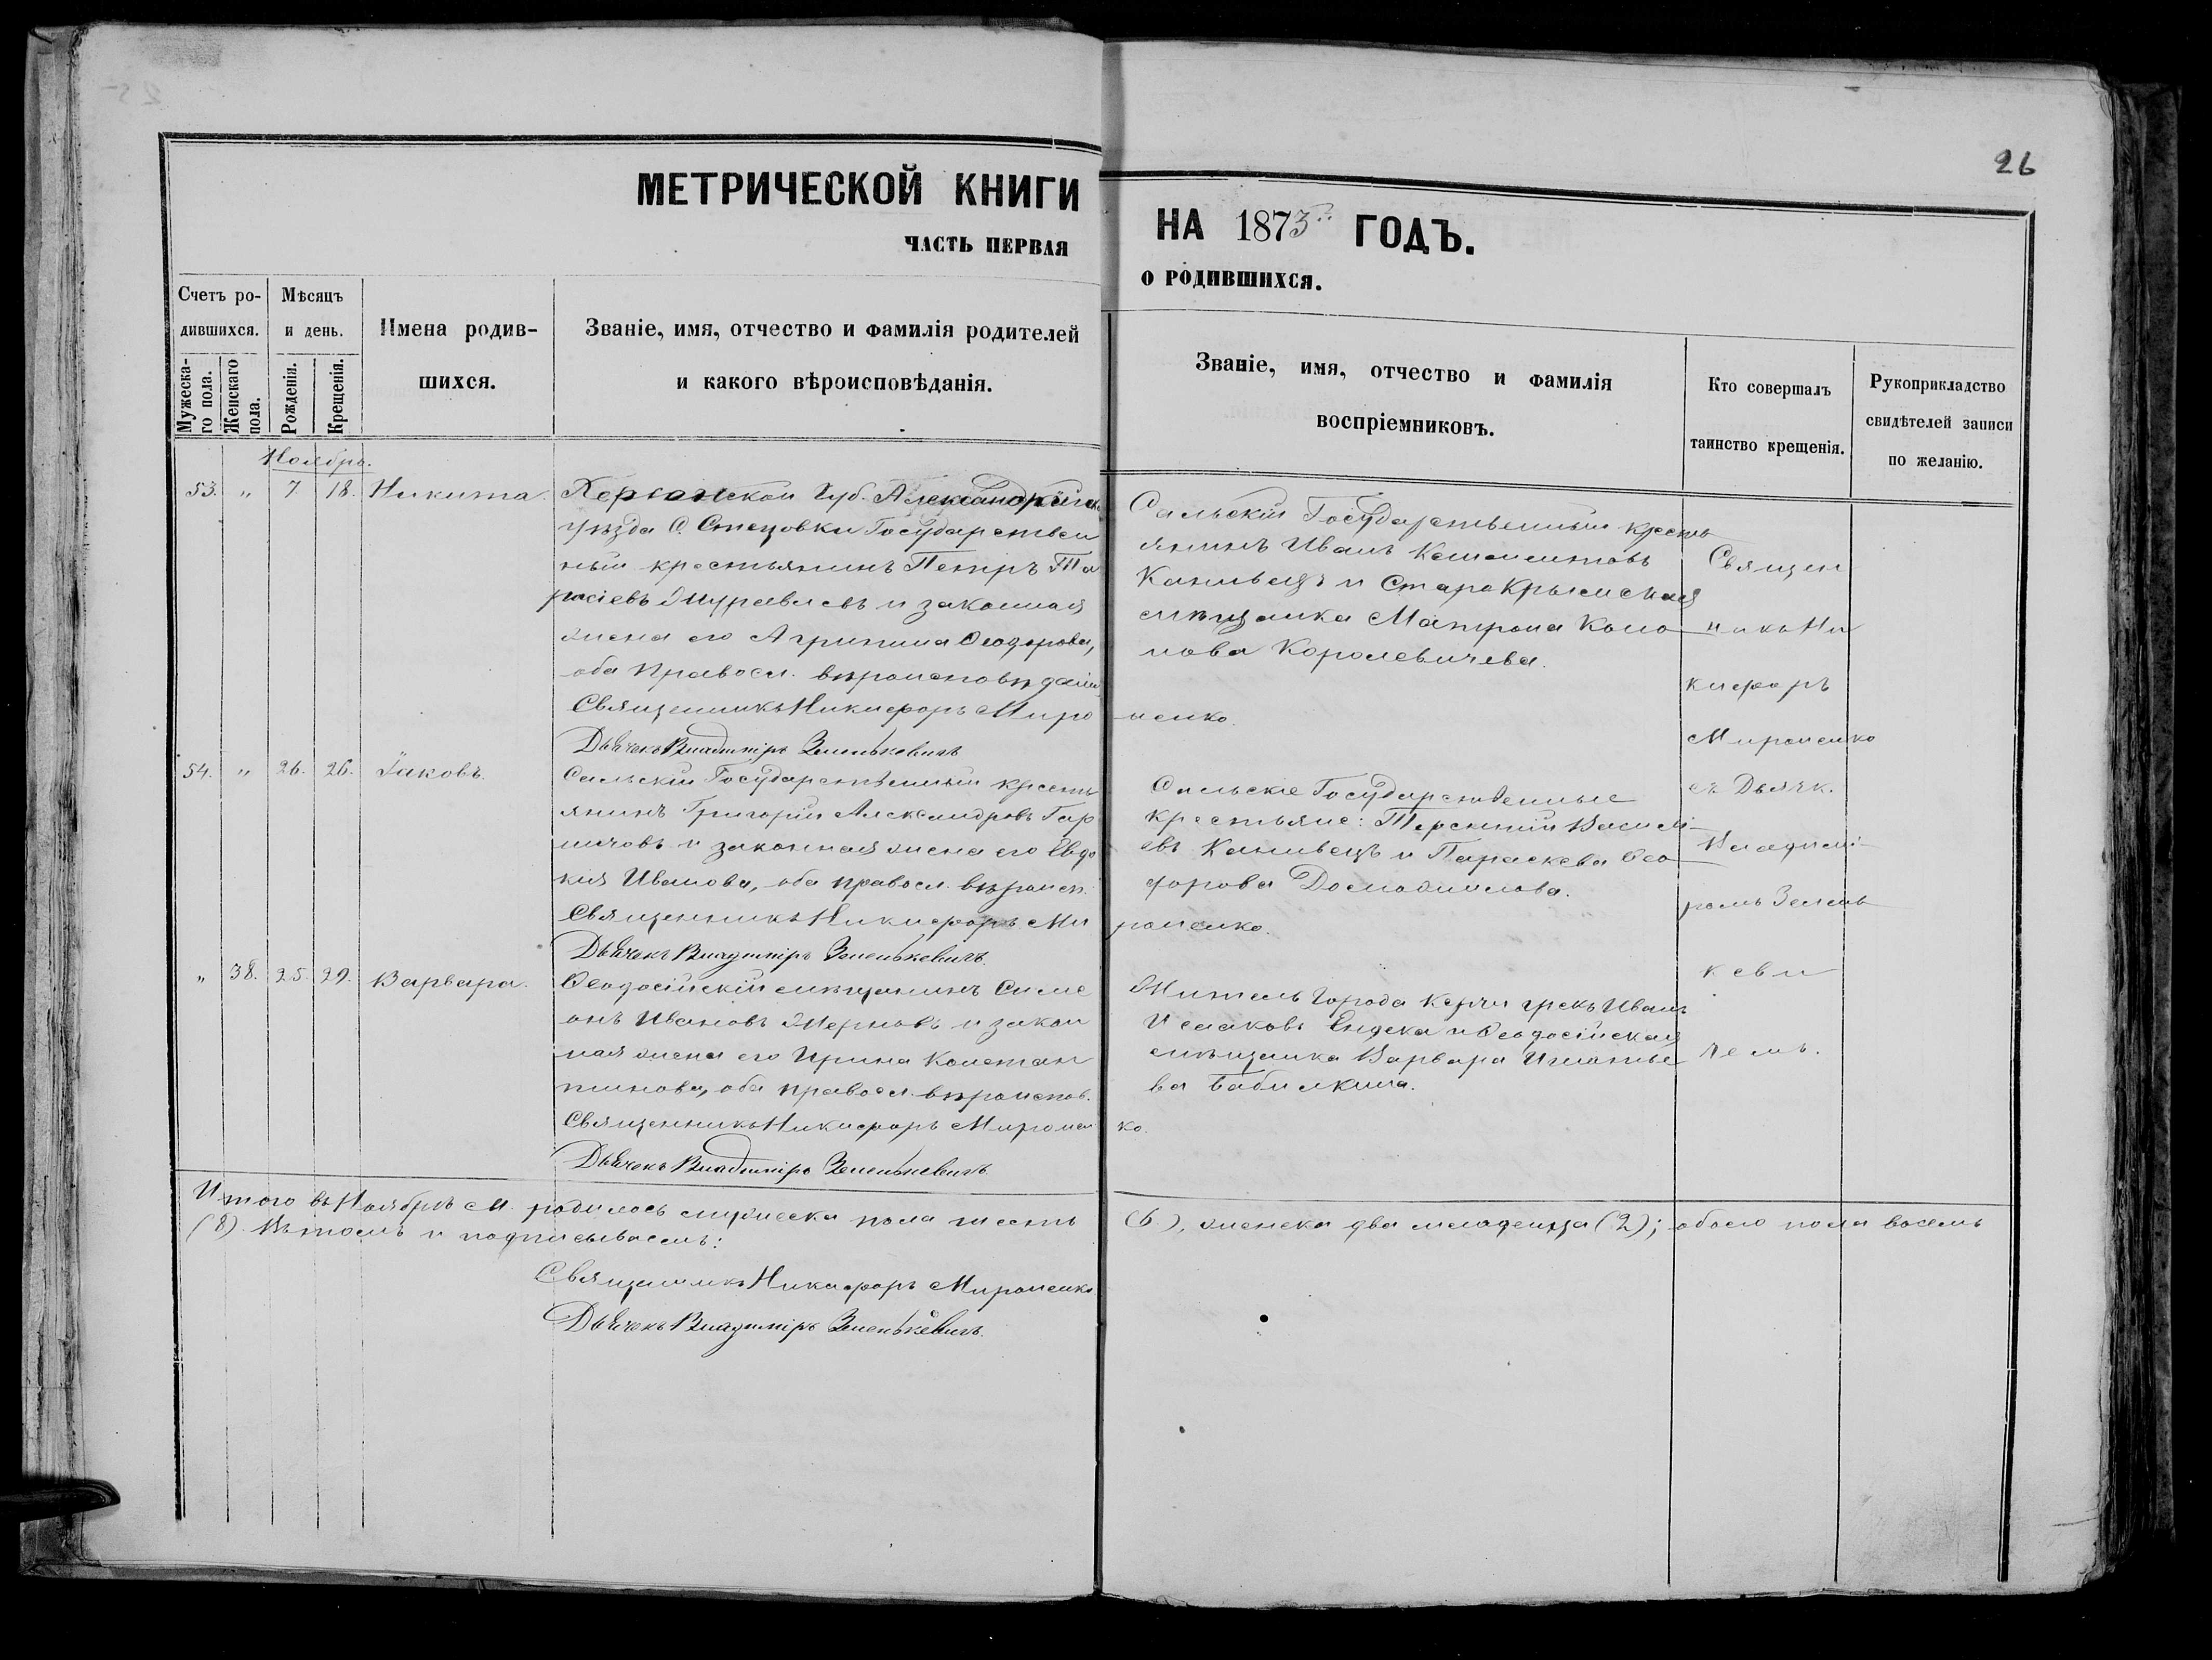 26
МЕТРИЧЕСКОЙ КНИГИ
ЧАСТЬ ПЕРВАЯ
НА 1873 ГОДЪ.
О РОДИВШИХСЯ.
Счетъ ро-
дившихся.
Мужеска-
го пола.
Женскаго
пола.
Мѣсяцъ
и день.
Рожденія.
Крещенія.
Имена родив-
шихся.
Званіе, имя, отчество и фамилія родителей
и какого вѣроисповѣданія.
Званіе, имя, отчество и фамилія
воспріемниковъ.
Кто совершалъ
таинство крещенія.
Рукоприкладство
свидѣтелей записи
по желанію.
Ноябрь.
53. " 7. 18. Никита.
Херсонской Губ. Александрійск
уѣзда С. Стецовки Государствен
ный крестьянинъ Петръ Та
расіевъ Журавлевъ и законная
жена его Агрипина Ѳеодорова,
оба правосл. вѣроисповѣданія
Священникъ Никифоръ Миро
ненко.
Дьячекъ Владиміръ Зеленькевичъ
Сальскій Государственный кресть
янинъ Иванъ
Канивецъ и СтароКрымская
мѣщанка Матрона Коно
нова Королевичева.
Священ
никъ Ни
кифоръ
Мироненко
съ Дьячк.
Владимі
ромъ Зелень
кеви
чемъ.
54. " 26. 26. Іаковъ.
Сальскій Государственный кресть
янинъ Григорій Александровъ Гар
и законная жена его Евдо
кия Иванова, оба правосл. вѣроисп.
Священникъ Никифоръ Ми
роненко.
Дьячекъ Владиміръ Зеленькевичъ.
Сальскіе Государственные
крестьяне: Терентій Василі
евъ Канивецъ и Параскева Ѳео
дорова Доможилова.
" 38. 25. 29. Варвара.
Ѳеодосійскій мѣщанинъ Симе
онъ Ивановъ Жерновъ и закон
ная жена его Ирина Констан
тинова, оба правосл. вѣроиспов.
Священникъ Никифоръ Миронен
ко.
Дьячекъ Владиміръ Зеленькевичъ.
Житель Города Керчи грекъ Иванъ
Исааковъ и Ѳеодосійская
мѣщанка Варвара Игнатье
ва Бабилкина.
Итого въ Ноябрѣ М. родилось мужеска пола шесть (6), женска два младенца (2); обоего пола восемь
(8). Въ томъ и подписываемъ:
Священникъ Никифоръ Мироненко
Дьячекъ Владиміръ Зеленькевичъ.